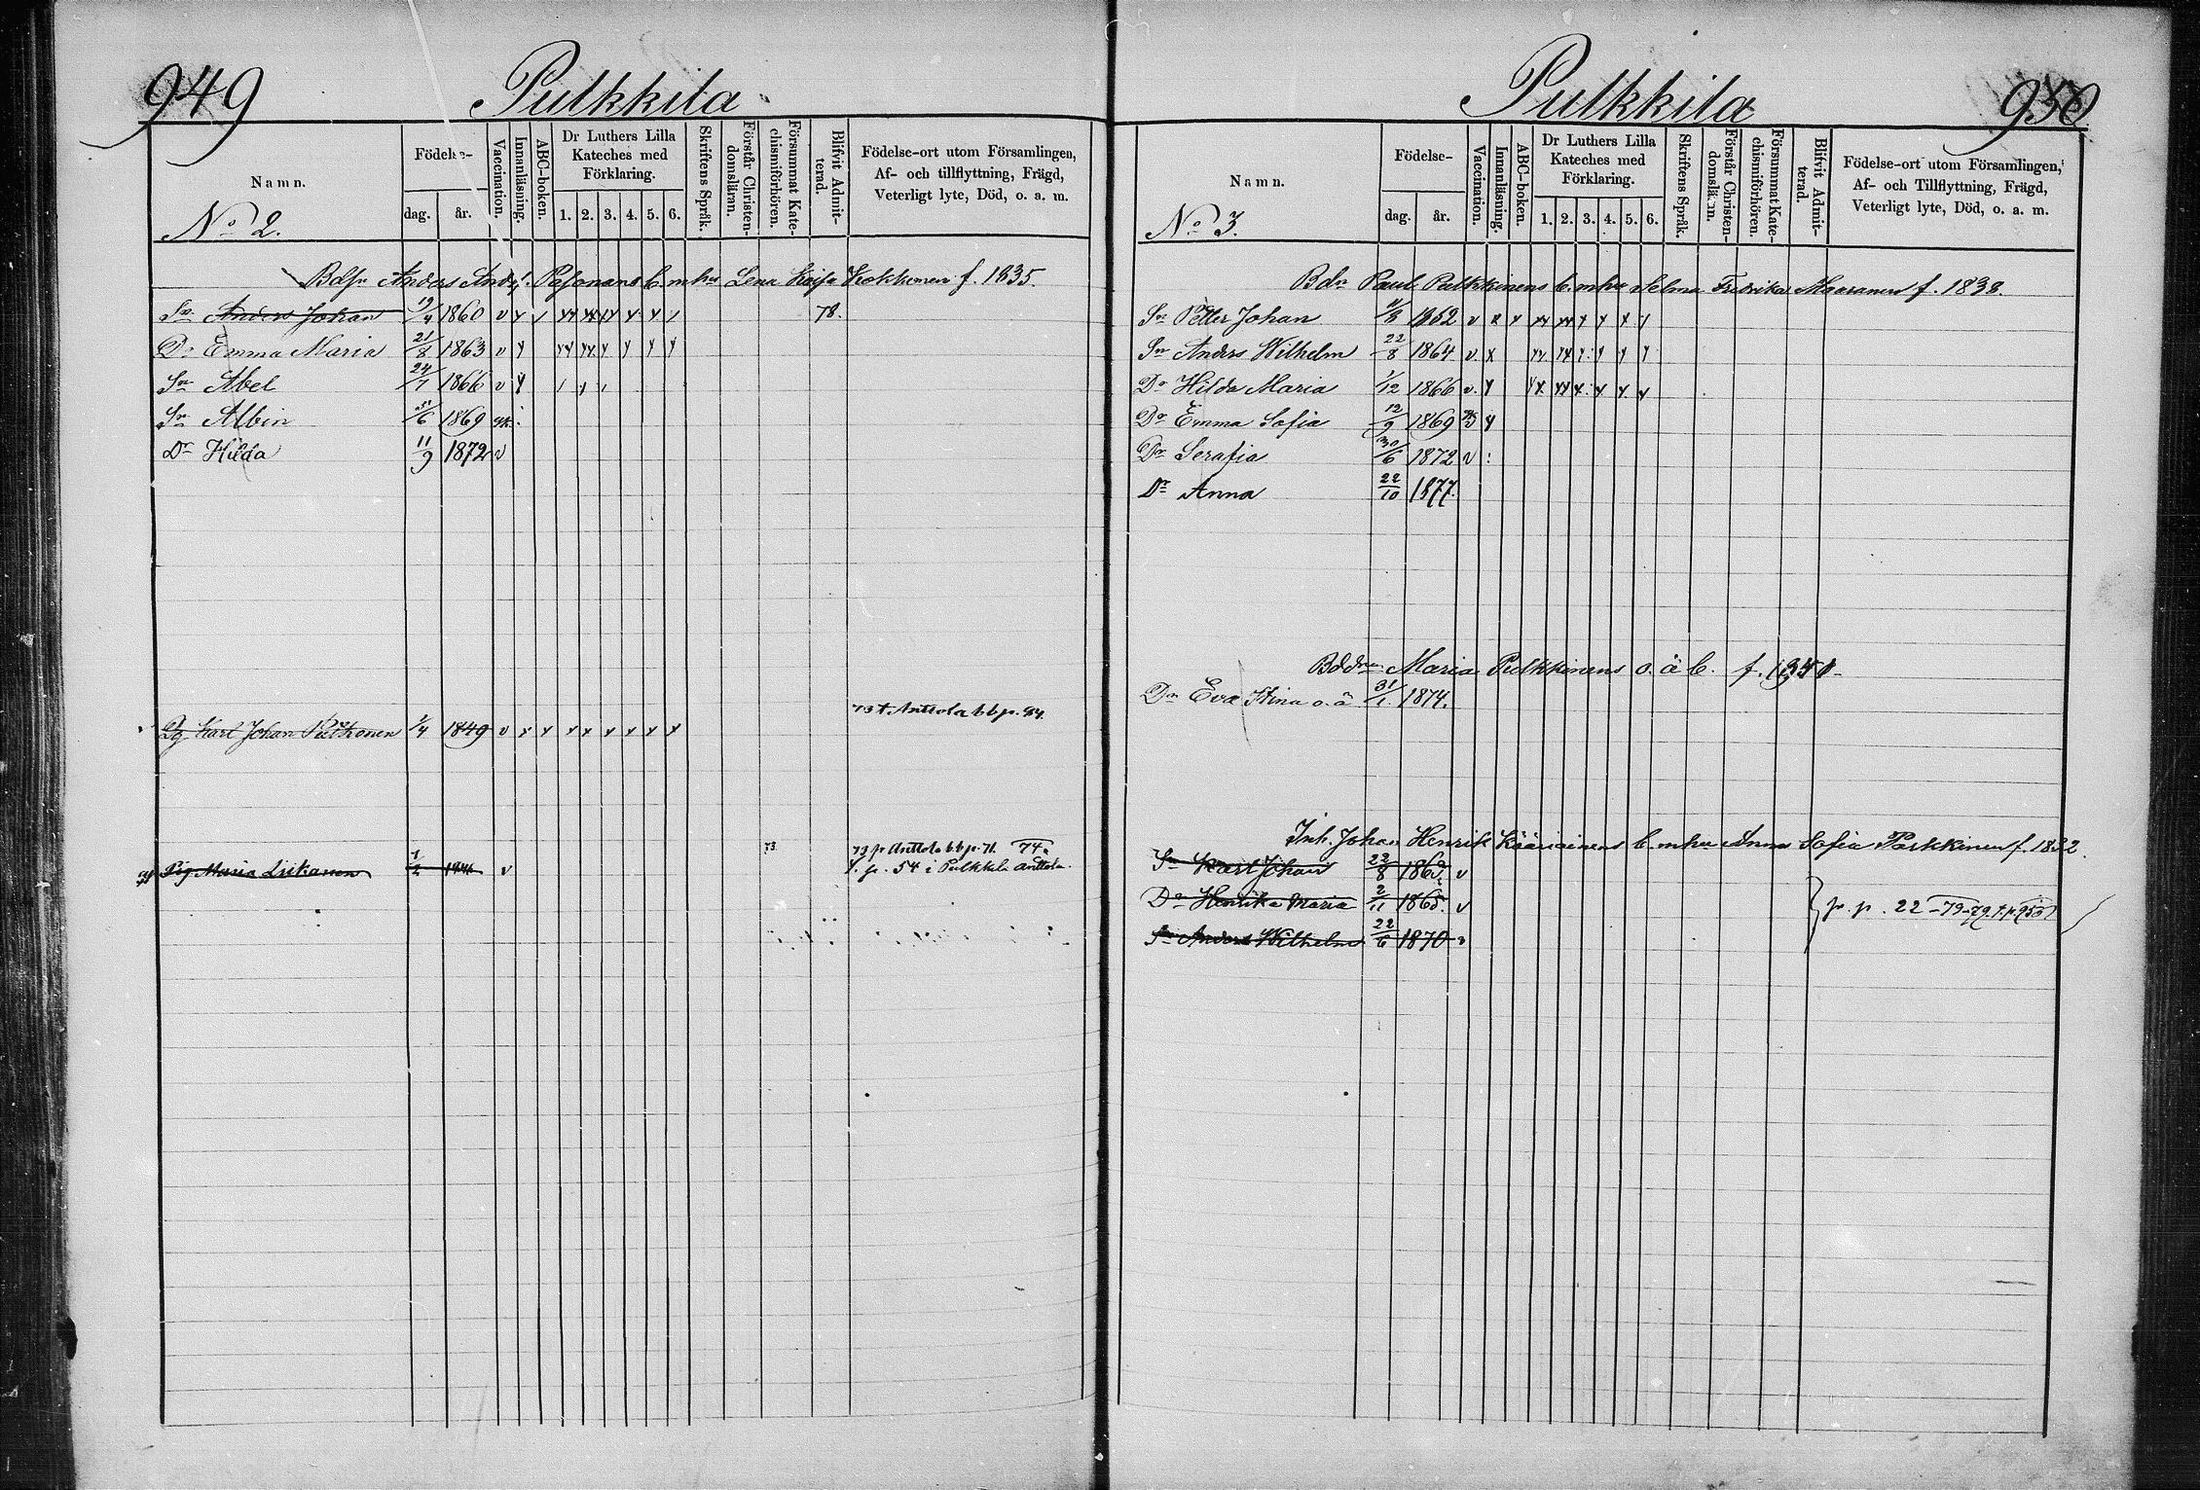 949
Pulkkila
Namn.
Födelse-
dag. år.
Vaccination.
Innanläsning.
ABC-boken.
Dr Luthers Lilla Kateches med Förklaring.
1. 2. 3. 4. 5. 6.
Skriftens Språk.
Förstår Christendomsläran.
Försummat Katechismiförhören.
Blifvit Admitterad.
Födelse-ort utom Församlingen,
Af- och tillflyttning, Frägd,
Veterligt lyte, Död, o. a. m.
No 2.
Bdsn Anders And. Pasonans b. m. hu Lena Kaisa Kokkonen f. 1835.
Sn Anders Johan 19/4 1860 v 78.
Dr Emma Maria 21/8 1863 v
Sn Abel 24/7 1866 v
Sn Albin 1869
Dr Hilda 11/9 1872 v
73 t. Anttola b b p. 94.
Dg Karl Johan 1/4 1849 v
73 73 p Anttola b b p. 71. 74.
Pig Maria Liikanen v f. p. 54 i Pulkkila Anttola
950
Pulkkila
Namn.
Födelse-
dag. år.
Vaccination.
Innanläsning.
ABC-boken.
Dr Luthers Lilla Kateches med Förklaring.
1. 2. 3. 4. 5. 6.
Skriftens Språk.
Förstår Christendomsläran.
Försummat Katechismiförhören.
Blifvit Admitterad.
Födelse-ort utom Församlingen,
Af- och Tillflyttning, Frägd,
Veterligt lyte, Död, o. a. m.
No 3.
Bdn Paul Pulkkinens b. m. hu Selma Fredrika Maaranen f. 1838.
Sn Petter Johan 1862 v
Sn Anders Wilhelm 22/8 1864 v.
Dr Hilda Maria 1/12 1866 v.
Dr Emma Sofia 12/9 1869
Dr Serafia 30/6 1872 v
Dr Anna 22/10 1877.
Maria Pulkkinens o. ä b. f.
Dr Eva Stina o. ä 31/1 1874.
Inh. Johan Henrik Kääriäinens b. m. hu Anna Sofia Parkkinen f. 1832.
Sn Karl Johan 22/8 v
Dr Henrika Maria 2/11 1865. v
Sn Anders Wilhelm 22/6 1870
p. p. 22